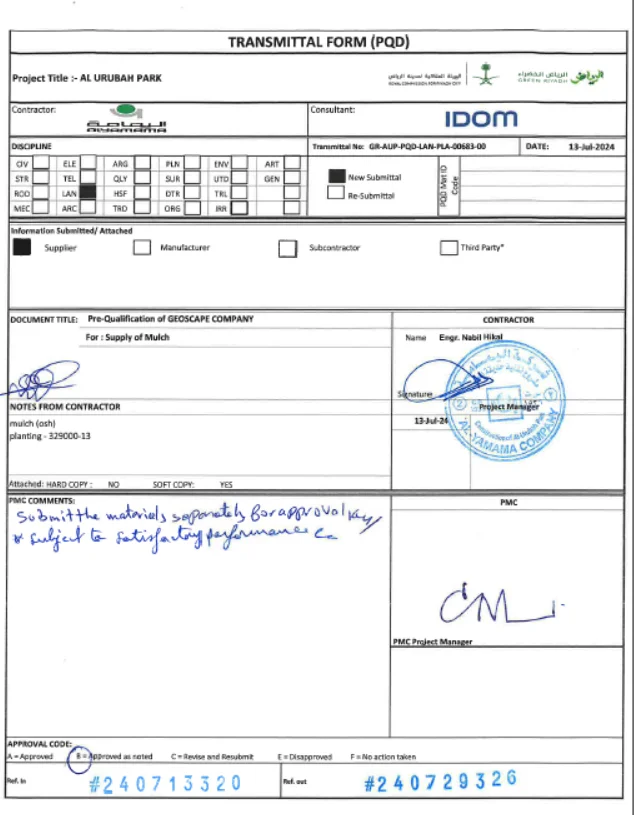 TRANSMITTAL FORM (PQD)
Project Title :- AL URUBAH PARK
الهيئة الملكية لمدينة الرياض
ROYAL COMMISSION FOR RIYADH CITY
الرياض الخضراء
GREEN RIYADH
الرياض
Contractor:
اليمامة
ALYAMAMA
Consultant:
IDOM
DISCIPLINE
Transmittal No: GR-AUP-PQD-LAN-PLA-00683-00
DATE: 13-Jul-2024
CIV ELE ARG PLN ENV ART
STR TEL QLY SUR UTD GEN
ROD LAN HSF DTR TRL
MEC ARC TRD ORG IRR
New Submittal
Re-Submittal
PQD Mat ID Code
Information Submitted/ Attached
Supplier Manufacturer Subcontractor Third Party*
DOCUMENT TITLE: Pre-Qualification of GEOSCAPE COMPANY
For : Supply of Mulch
CONTRACTOR
Name Engr. Nabil Hikal
Signature
Project Manager
13-Jul-24
AL YAMAMA COMPANY
NOTES FROM CONTRACTOR
mulch (osh)
planting - 329000-13
Attached: HARD COPY : NO SOFT COPY: YES
PMC COMMENTS:
Submit the materials separately for approval
& subject to satisfactory performance
PMC
PMC Project Manager
APPROVAL CODE:
A = Approved B = Approved as noted C = Revise and Resubmit E = Disapproved F = No action taken
Ref. In #240713320
Ref. out #240729326